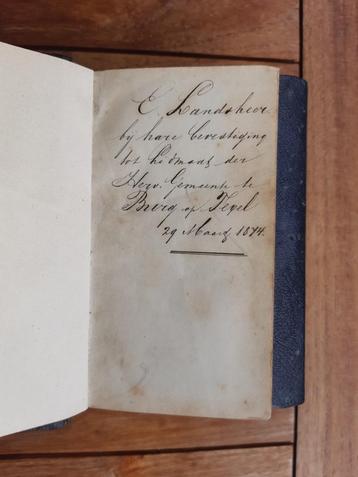 E. Landsheer
bij hare bevestiging
tot lidmaat der
Herv. Gemeente te
Burg op Texel
29 Maart 1874.